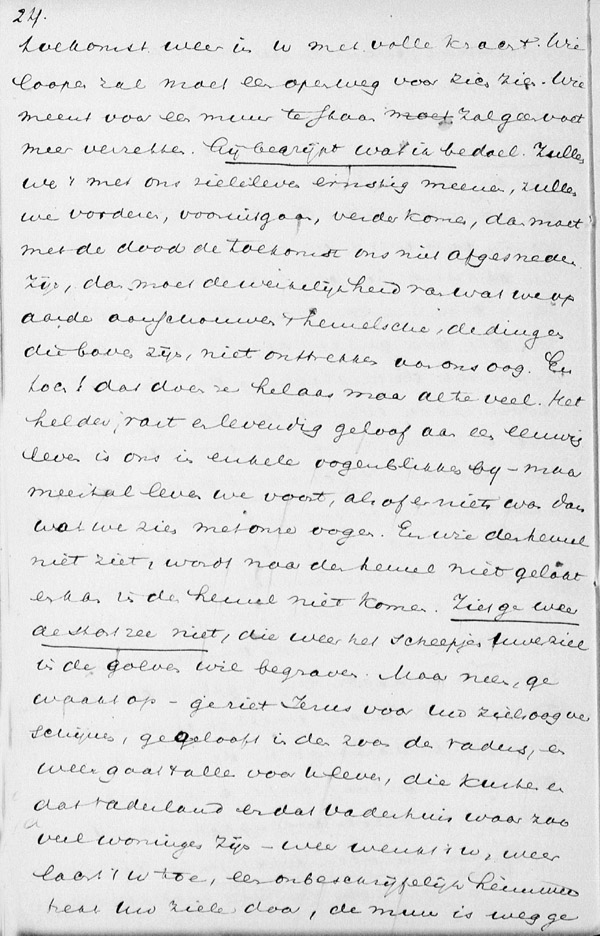 24.
toekomst weer in u met volle kracht. Wie
loopen zal moet een open weg voor zich zien. Wie
meent voor een muur te staan moet zal geen voet
meer verzetten. Gij begrijpt wat ik bedoel. Zullen
we 't met ons zieleleven ernstig meenen, zullen
we vorderen, vooruitgaan, verder komen, dan moet
met de dood de toekomst ons niet afgesneden
zijn, dan moet de werkelijkheid van wat we op
aarde aanschouwen 't hemelsche, de dingen
die boven zijn, niet onttrekken aan ons oog. En
toch! dat doen ze helaas maar al te veel. Het
helder, vast en levendig geloof aan een eeuwig
leven is ons in enkele oogenblikken bij – maar
meestal leven we voort, alsof er niets was dan
wat we zien met onze oogen. En wie den hemel
niet ziet, wordt naar den hemel niet gelokt
en kan in den hemel niet komen. Ziet ge weer
de stortzee niet, die weer het scheepje uwer ziel
in de golven wil begraven. Maar neen, ge
waakt op – ge ziet Jezus voor uw zielsoog ver
schijnen, ge gelooft in den zoon des vaders, en
weer gaat 't alles voor u leven, die kusten en
dat vaderland en dat vaderhuis waar zoo
veel woningen zijn – weer wenkt 't u, weer
lacht 't u toe, een onbeschrijfelijk heimwee
trekt uw ziele door, de muur is wegge